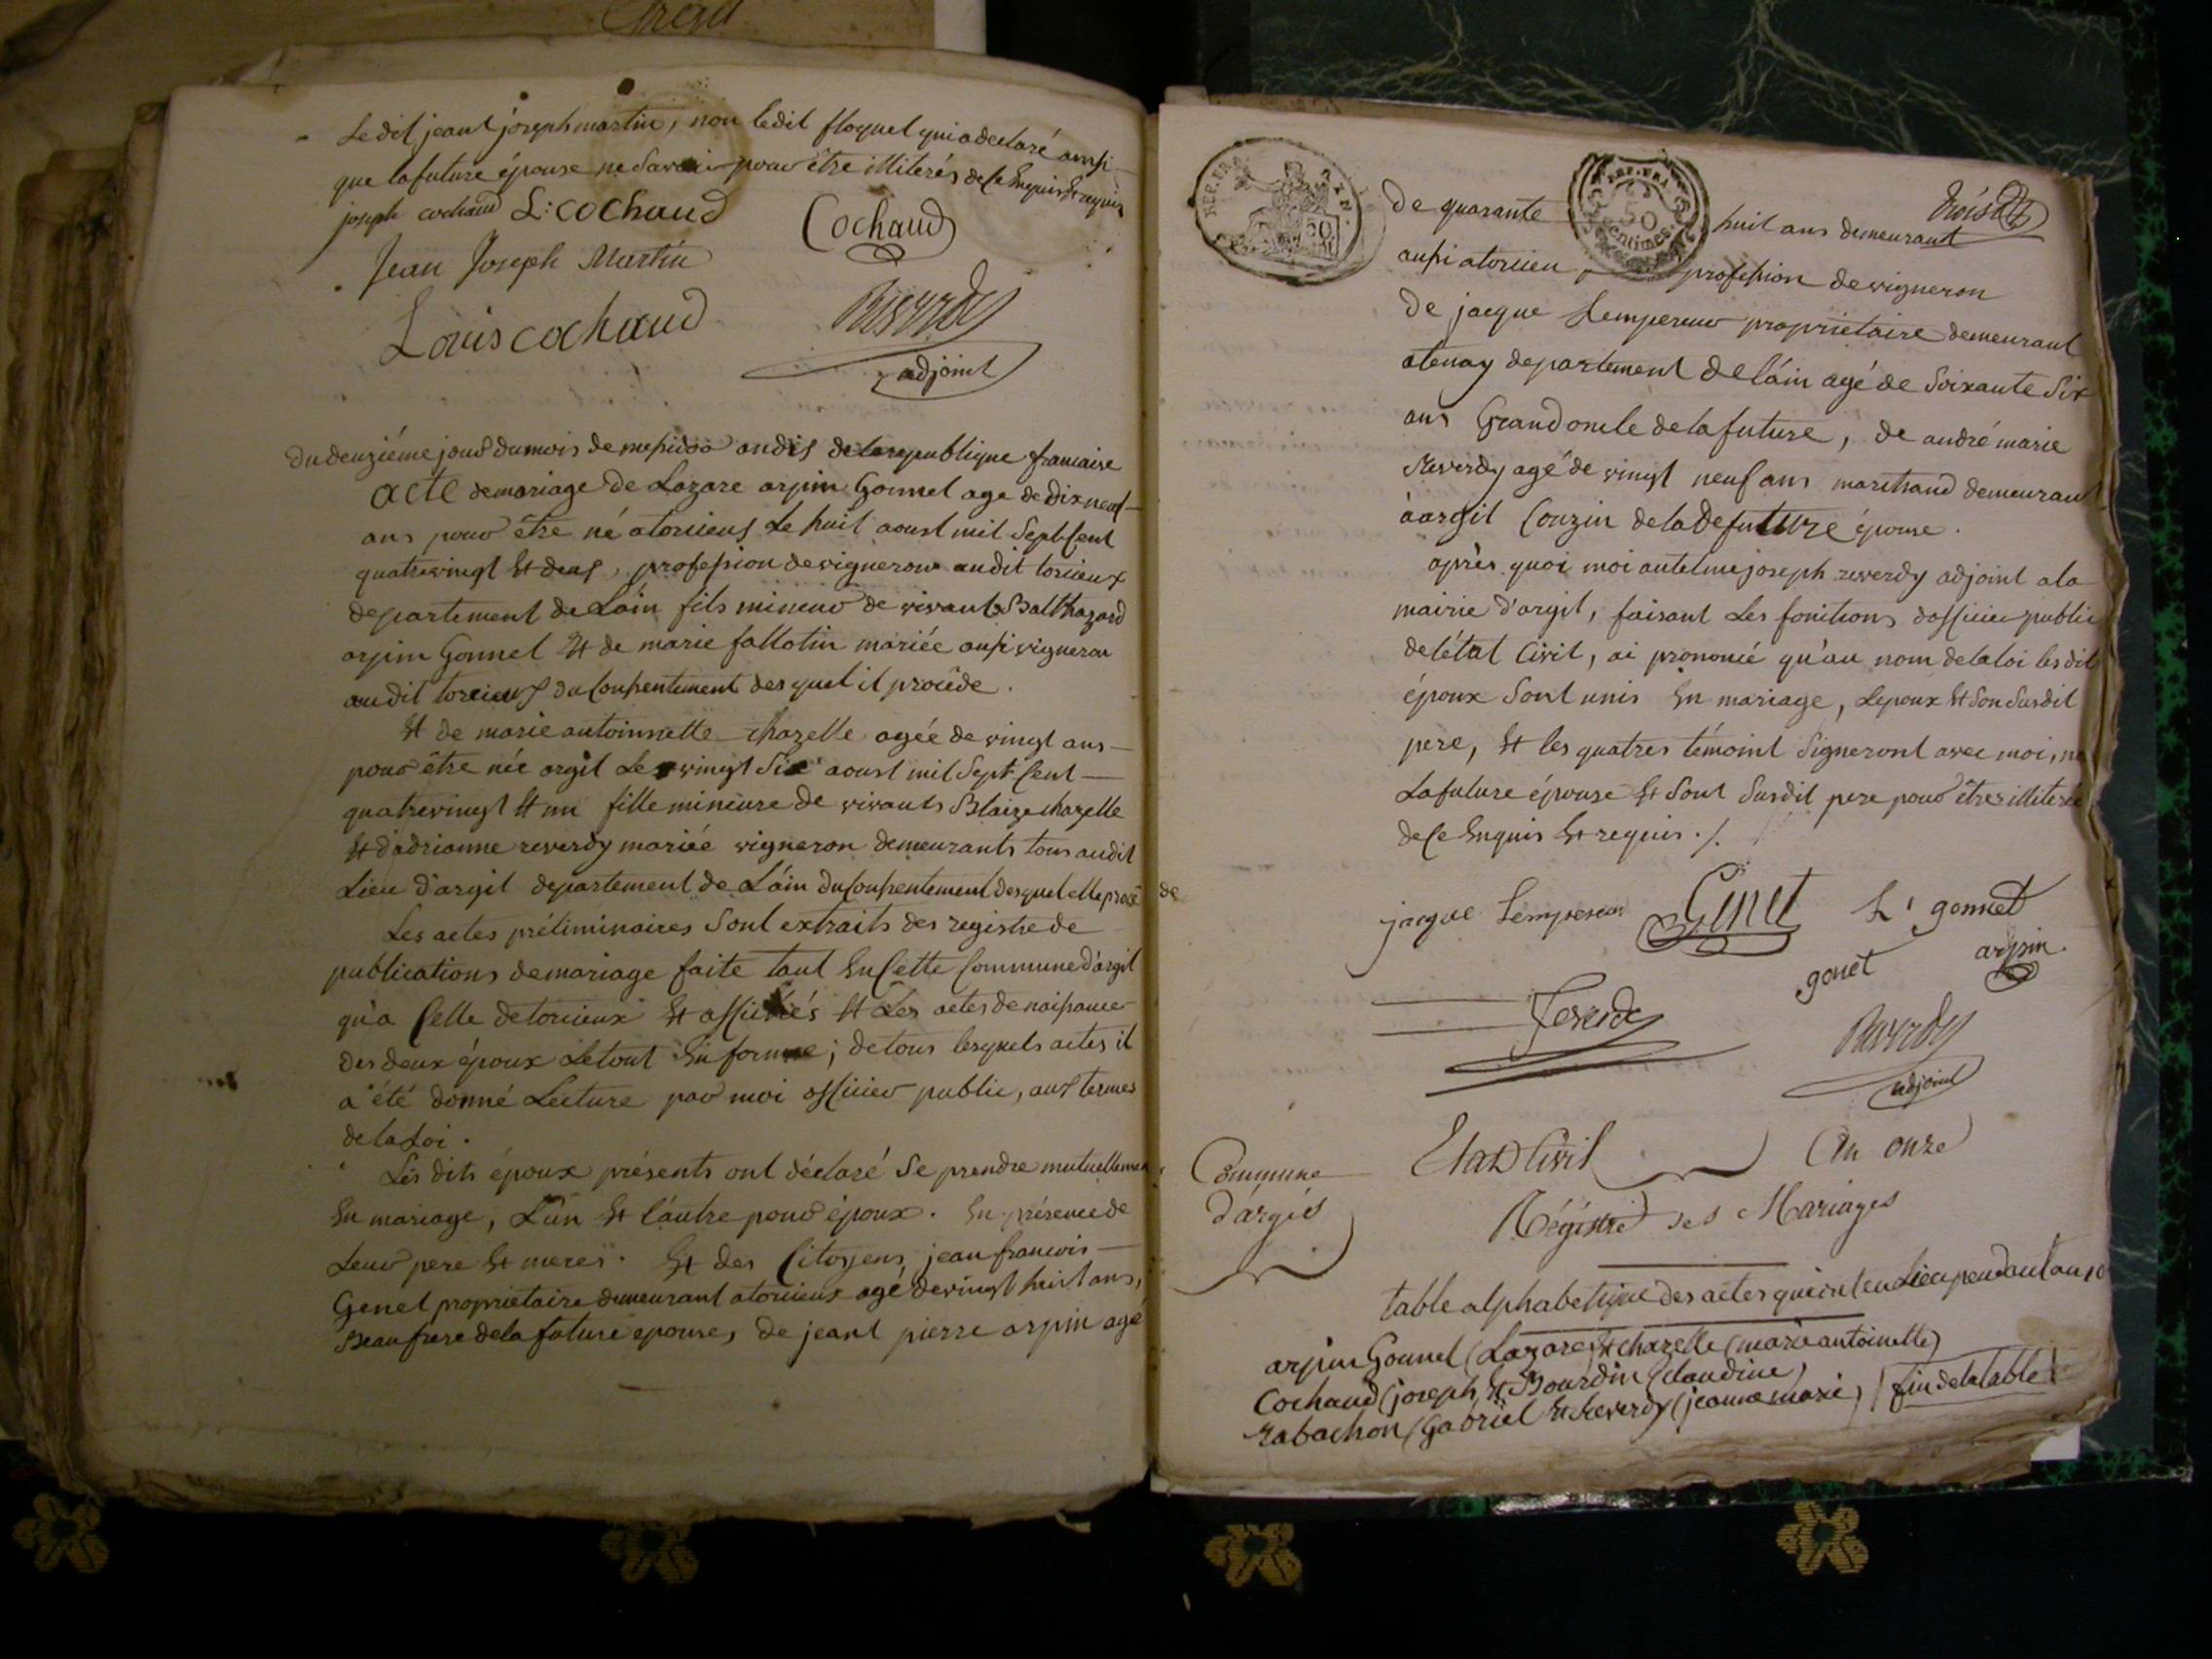 Le dit jeant joseph martin, non ledit floquel qui a declaré aussi
que la future épouse ne savoir pour être illiterés de ce Enquis Et requis
joseph cochaud L: cochaud
Cochaud
Jean Joseph Martin
Louis cochaud
Reverdy
adjoint
du deuziéme jour du mois de messidor an dis de la republique francaise
acte de mariage de Lazare arpin Gonnel age de dix neuf
ans pour être né a torcieus Le huit aoust mil Sept Cent
quatrevingt Et deus, profession de vigneron audit torcieux
departement de Lain fils mineur de vivants Balthazard
arpin Gonnel Et de marie fallotin mariée aussi vigneron
audit torcieus du Consentement desquel il procède.
Et de marie antoinnette chazelle agée de vingt ans
pour être née argil Le vingt Six aoust mil Sept Cent
quatrevingt Et un fille mineure de vivants Blaize chazelle
Et d'adrianne reverdy mariée vigneron demeurants tous audit
Lieu d'argil departement de L'ain du Consentement desquel elle procède
Les actes préliminaires Sont extraits des registre de
publications de mariage faite tant En Cette Commune d'argil
qu'a Celle de torcieux Et affichés Et Les actes de naissance
des deux époux Le tout En forme; de tous lesquels actes il
a été donné Lecture par moi officier public, aux termes
de la Loi.
Les dits époux présents ont déclaré Se prendre mutuellement
En mariage, L'un Et l'autre pour époux. En présence de
Leur pere Et meres. Et des Citoyens jean francois
Genet proprietaire demeurant a torcieux agé de vingt huit ans,
Beaufrere de la future epouse, de jeant pierre arpin agé
REP. FRA.
50
REP. FRA.
50
centimes
trois
de quarante huit ans demeurant
aussi a torcieu profession de vigneron
De jacque Lempereur proprietaire demeurant
a tenay departement de l'ain agé de Soixante Six
ans Grand oncle de la future, de andré marie
Reverdy agé de vingt neuf ans marchand demeurant
à argil Couzin de la de future épouse.
après quoi moi antelme joseph reverdy adjoint a la
mairie d'argil, faisant Les fonctions d'officier public
de l'état Civil, ai prononcé qu'au nom de la loi les dit
époux Sont unis En mariage, L'epoux Et Son Susdit
pere, Et les quatres témoint Signeront avec moi, ne
La future épouse Et Sont Susdit pere pour être illiteré
de Ce Enquis Et requis ./.
jacque Lempereur
Genet
L' gonnet
gonet
arpin
Reverdy
adjoint
Commune
d'argis
Etat Civil
An onze
Régistre des Mariages
table alphabetique des actes qui ont eu Lieu pendant l'an 10
arpin Gonnel (Lazare) Et chazelle (marie antoinette)
Cochaud (joseph Et Bourdin (claudine)
rabachon (Gabriel Et Reverdy (jeanne marie) fin de la table